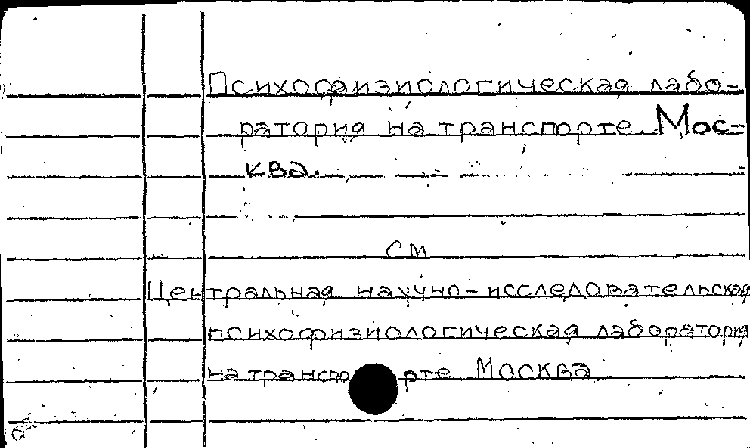 Психофизиологическая лабо-
ратория на транспорте. Мос-
ква.
см
Центральная научно-исследовательская
психофизиологическая лаборатория
на транспорте Москва